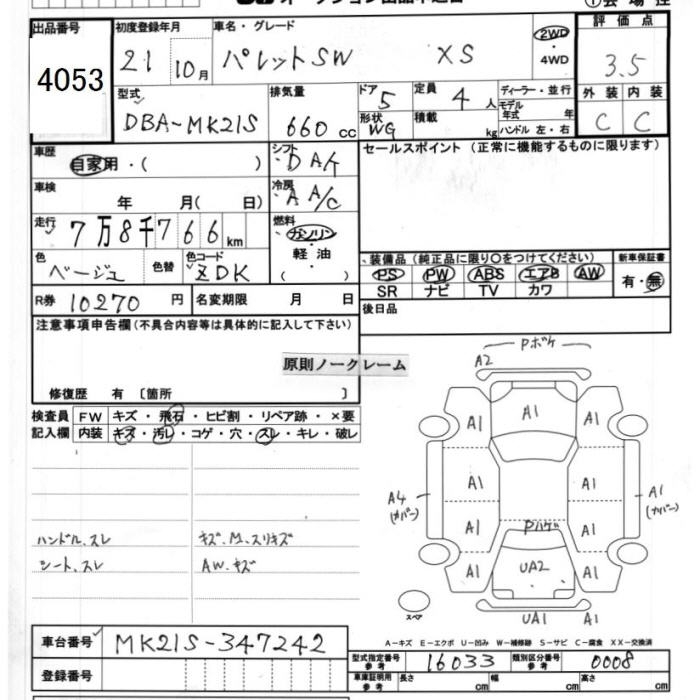 オークション出品申込書
①会場控
出品番号 初度登録年月 車名・グレード 評価点
4053 21 10月 パレットSW XS 2WD・4WD 3.5
型式 排気量 ドア 定員 ディーラー・並行 外装 内装
DBA-MK21S 660cc 5 4人 モデル年式 年 C C
形状 WG 積載 kg ハンドル 左・右
車歴 自家用・( ) シフト DA/T セールスポイント (正常に機能するものに限ります)
車検 年 月( 日) 冷房 A A/C
走行 7万8千766km 燃料 ガソリン・軽油・( )
色 ベージュ 色替 色コード ZDK 装備品 (純正品に限り○をつけてください) 新車保証書
PS PW ABS エアB AW 有・無
SR ナビ TV カワ
R券 10270円 名変期限 月 日 後日品
注意事項申告欄 (不具合内容等は具体的に記入して下さい)
原則ノークレーム
修復歴 有 〔箇所 〕
検査員 FW キズ・飛石・ヒビ割・リペア跡・×要
記入欄 内装 キズ・汚レ・コゲ・穴・スレ・キレ・破レ
ハンドル.スレ キズ.M.スリキズ
シート.スレ AW.キズ
Pボケ
A2
A1 A1 A1
A4 (カバー) A1 A1 A1 (カバー)
A1 Pハゲ A1
A1 UA2 A1
スペア UA1 A1
A-キズ E-エクボ U-凹み W-補修跡 S-サビ C-腐食 XX-交換済
車台番号 MK21S-347242
型式指定番号 参考 16033 類別区分番号 参考 0008
登録番号 車庫証明用 参考 長さ cm 幅 cm 高さ cm